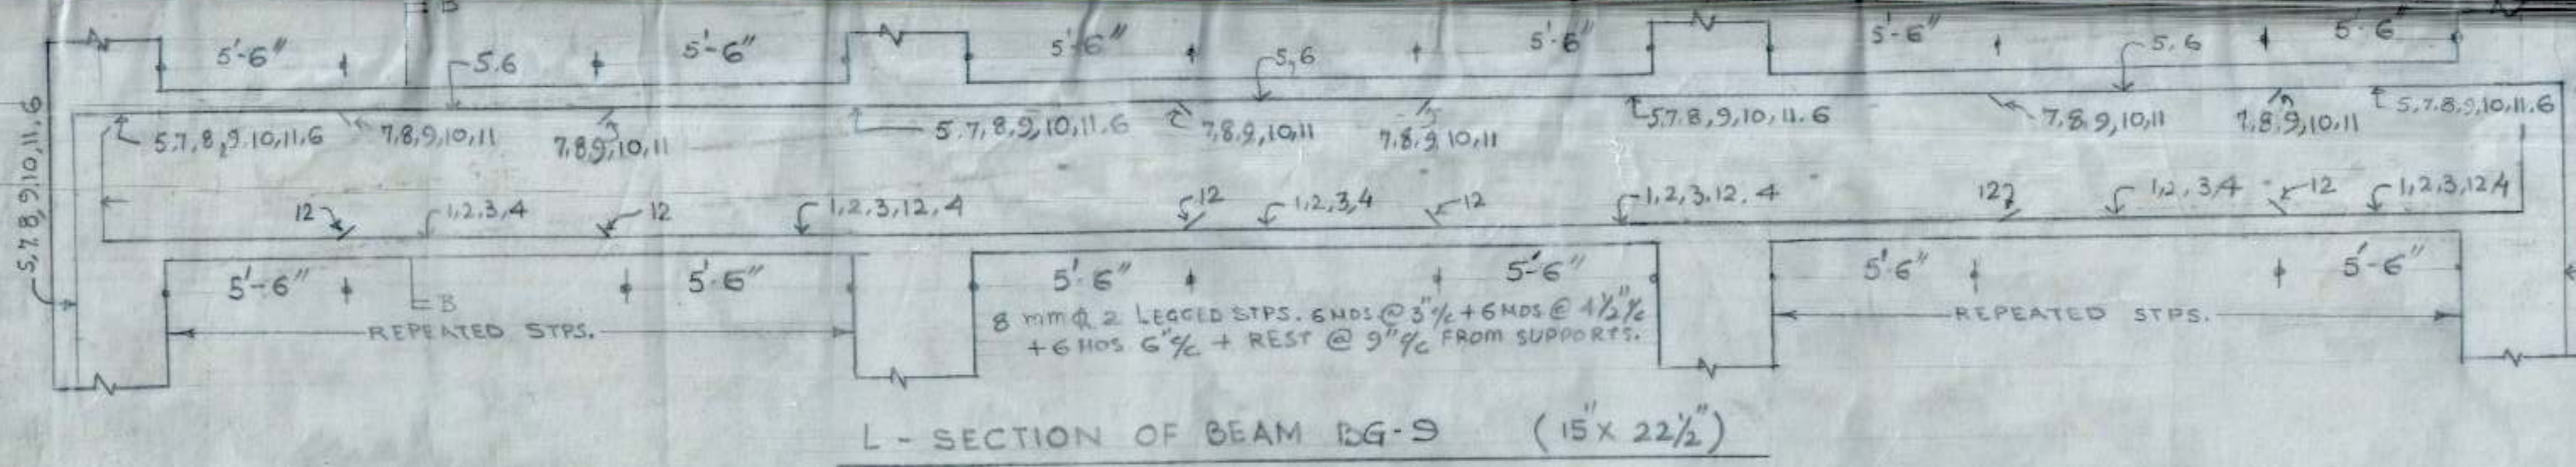 5'-6" 5'-6" 5'-6" 5'-6" 5'-6" 5'-6"
5.6 5,6 5.6
5,7,8,9,10,11,6
5.7,8,9.10,11,6 7,8,9,10,11 7,8,9,10,11 5.7,8,9,10,11.6 7,8.9,10,11 7,8,9,10,11 5.7.8,9,10,11.6 7.8.9,10,11 7.8.9,10,11 5.7.8.9,10,11.6
12 1,2,3,4 12 1,2,3,12,4 12 1,2,3,4 12 1,2,3,12.4 12 1,2,3,4 12 1,2,3,12,4
5'-6" 5'-6" 5'-6" 5'-6" 5'-6" 5'-6"
B
REPEATED STPS.
8 mm Φ 2 LEGGED STPS. 6 NOS @ 3" c/c + 6 NOS @ 4½" c/c
+ 6 NOS 6" c/c + REST @ 9" c/c FROM SUPPORTS.
REPEATED STPS.
L - SECTION OF BEAM BG-9 (15" X 22½")